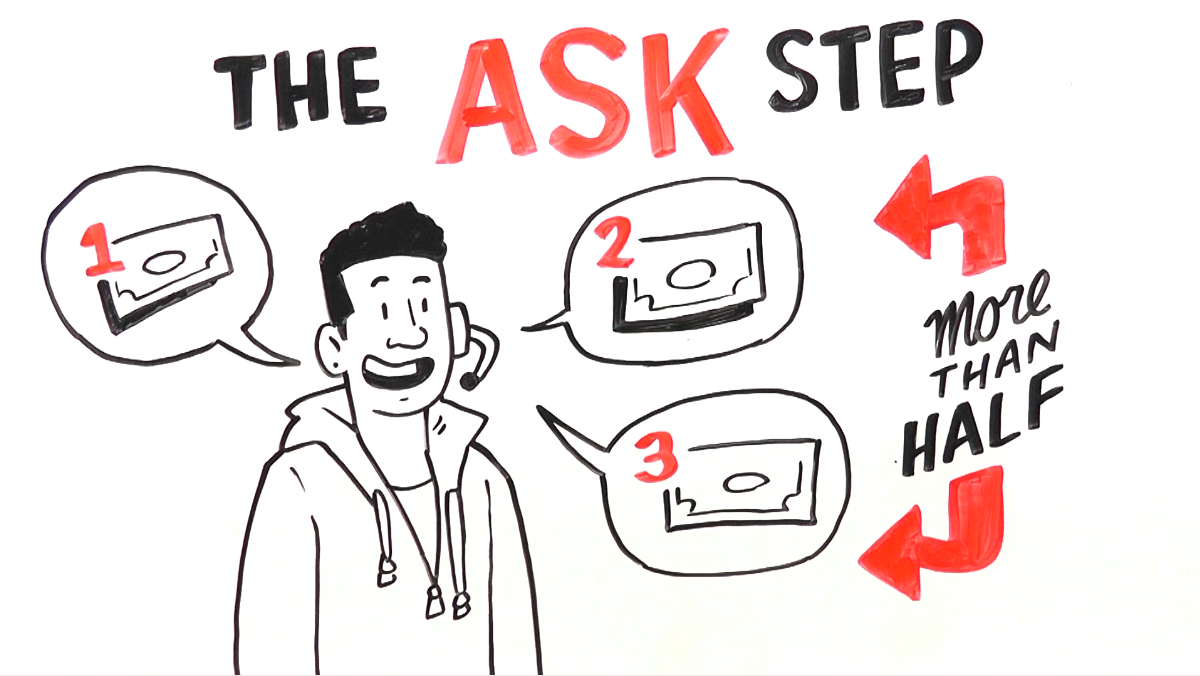 THE ASK STEP
1
2
3
more
THAN
HALF